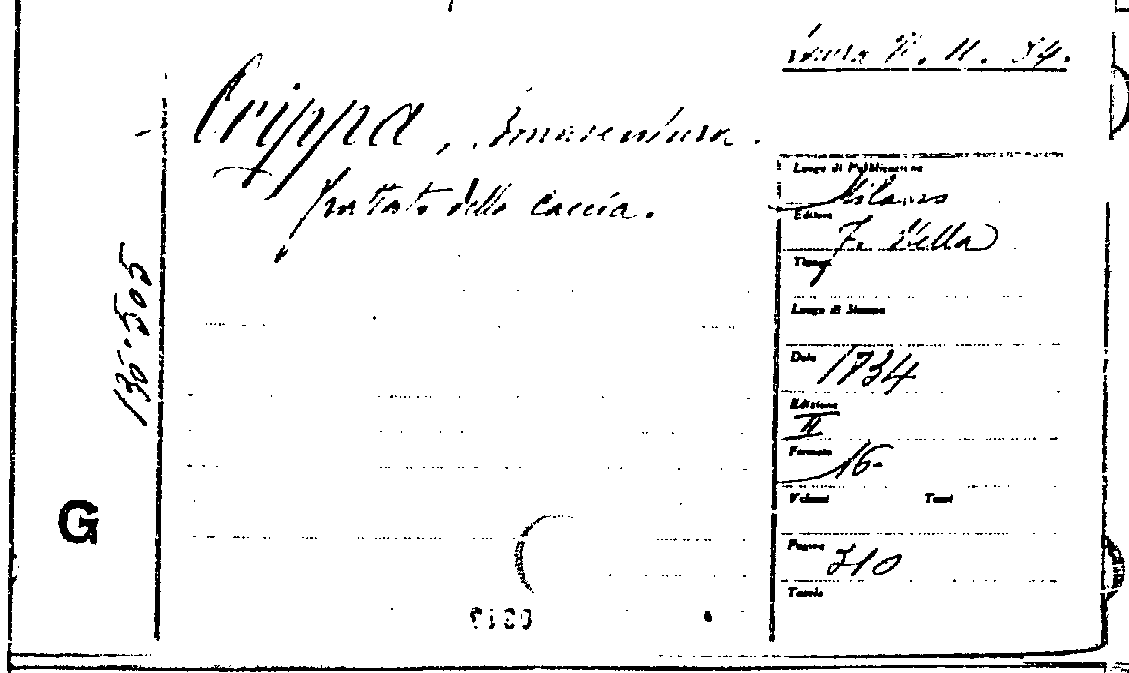 N. 11. 34.
Crippa, Bonaventura.
Trattato della caccia.
Luogo di Pubblicazione
Milano
Editore
F. Stella
Tipogr.
Luogo di Stampa
Data 1834
Edizione
II
Formato 16°
Volumi Tomi
Pagine 310
Tavole
135.505
G